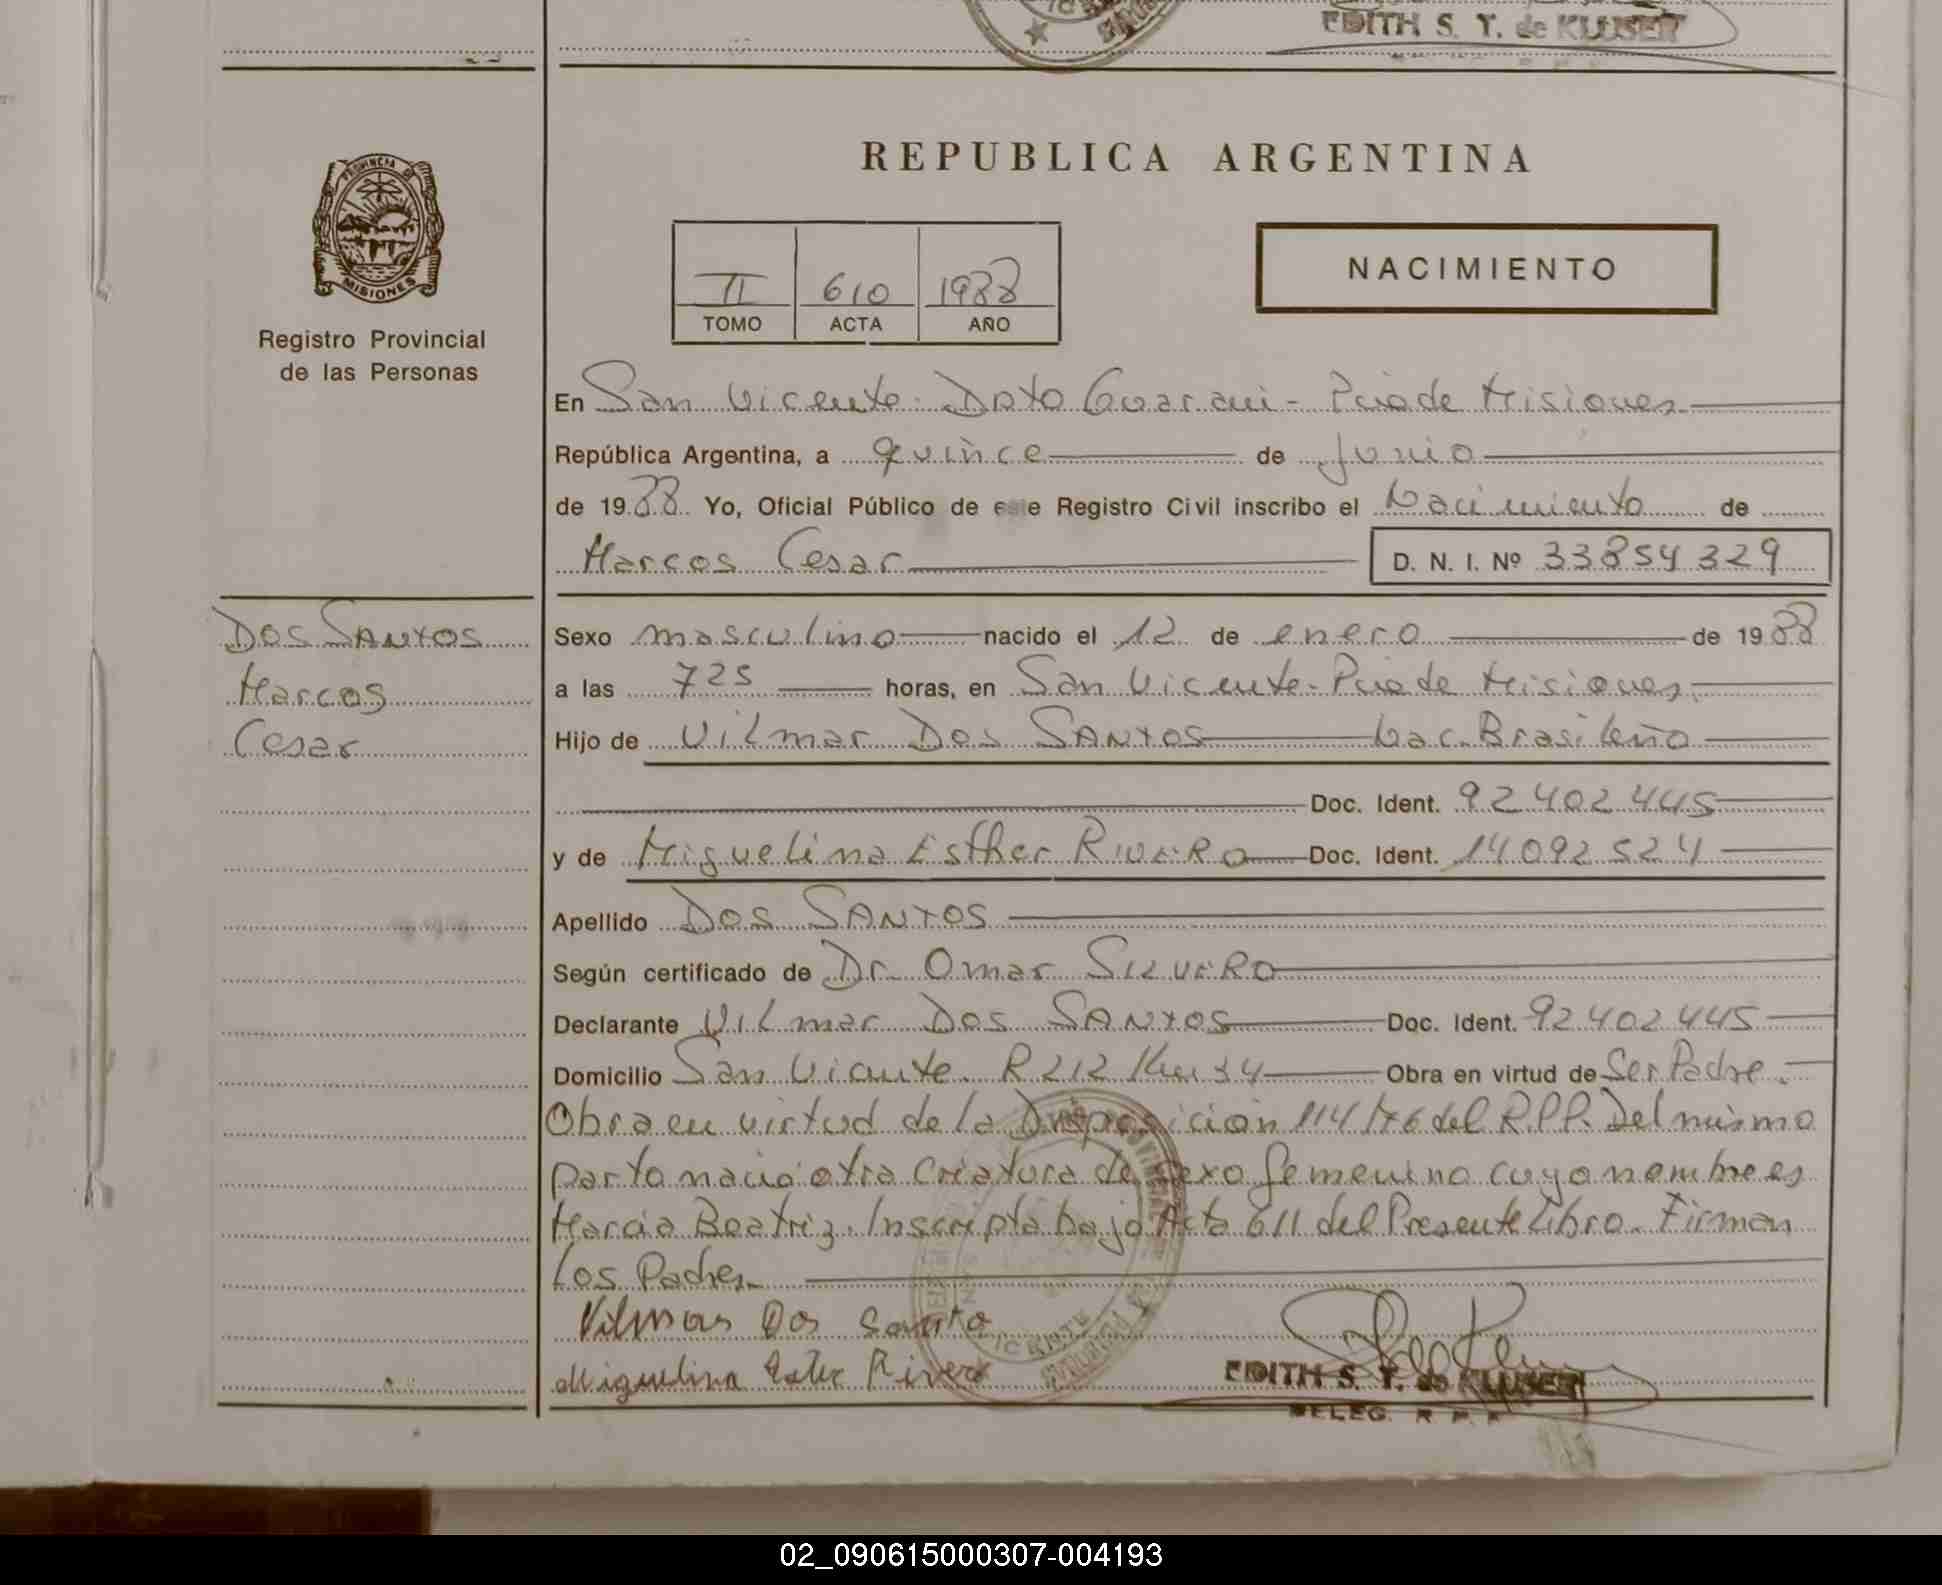 EDITH S. T. de KLUSER
PROVINCIA DE
MISIONES
Registro Provincial
de las Personas
REPUBLICA ARGENTINA
II 610 1988
TOMO ACTA AÑO
NACIMIENTO
En San Vicente. Dpto Guarani - Pcia de Misiones
República Argentina, a quince de Junio
de 1988 Yo, Oficial Público de este Registro Civil inscribo el Nacimiento de
Marcos Cesar D. N. I. Nº 33854329
Dos SANTOS
Marcos
Cesar
Sexo masculino nacido el 12 de enero de 1988
a las 725 horas, en San Vicente - Pcia de Misiones.
Hijo de Vilmar Dos SANTOS Nac. Brasileño
Doc. Ident. 92402445
y de Miguelina Esther RIVERO Doc. Ident. 14092524
Apellido Dos SANTOS
Según certificado de Dr. Omar SILVERO
Declarante Vilmar Dos SANTOS Doc. Ident. 92402445
Domicilio San Vicente. R 212 Km 34 Obra en virtud de Ser Padre.
Obra en virtud de la Disposicion 114/76 del R.P.P. Del mismo
parto nacio otra Criatura de sexo femenino cuyo nombre es
Marcia Beatriz. Inscripta bajo Acta 611 del Presente Libro. Firman
Los Padres.
Vilmar Dos Santo
Miguelina Ester Rivero
EDITH S. T. de KLUSER
DELEG. R. P. P.
02_090615000307-004193